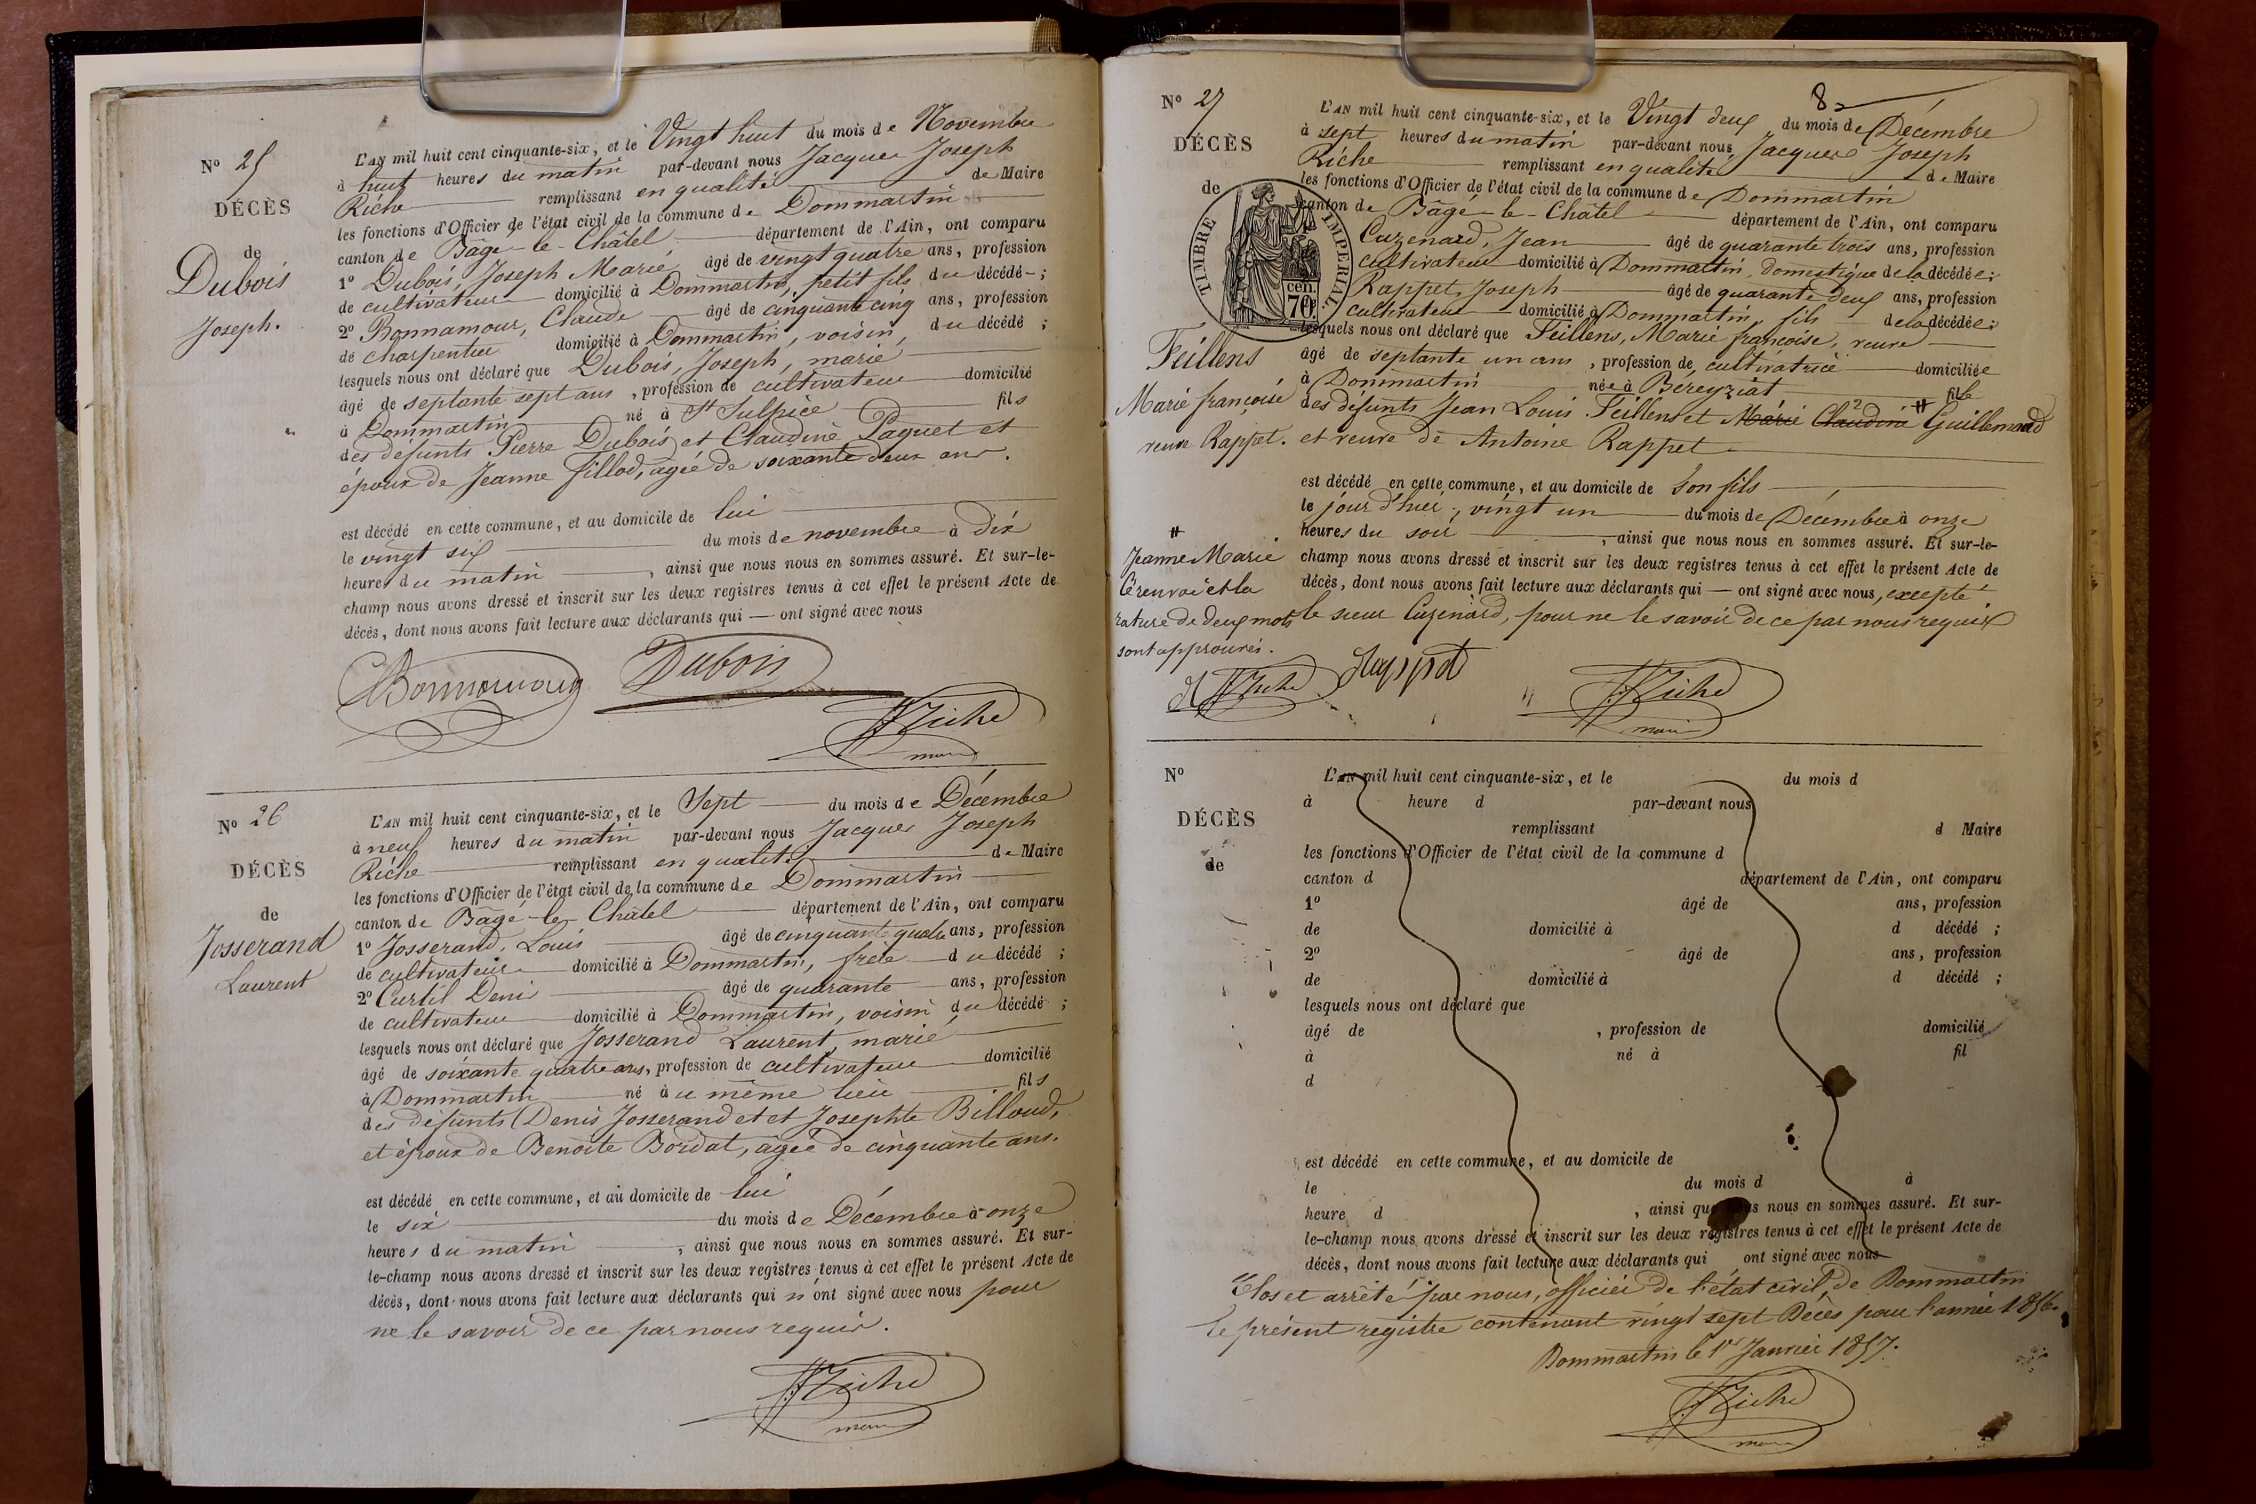 N° 25
DÉCÈS
de
Dubois
Joseph.
L'AN mil huit cent cinquante-six, et le Vingt huit du mois de Novembre
à huit heures du matin par-devant nous Jacques Joseph
Riche remplissant en qualité de Maire
les fonctions d'Officier de l'état civil de la commune de Dommartin
canton de Bâgé-le-Châtel département de l'Ain, ont comparu
1° Dubois, Joseph Marie âgé de vingt quatre ans, profession
de cultivateur domicilié à Dommartin, petit fils du décédé ;
2° Bonnamour, Claude âgé de cinquante cinq ans, profession
de charpentier domicilié à Dommartin, voisin, du décédé ;
lesquels nous ont déclaré que Dubois, Joseph, marié
âgé de septante sept ans, profession de cultivateur domicilié
à Dommartin né à St Sulpice fils
des défunts Pierre Dubois et Claudine Paquet et
époux de Jeanne fillod, agée de soixante deux ans.
est décédé en cette commune, et au domicile de lui
le vingt six du mois de novembre à dix
heures du matin , ainsi que nous nous en sommes assuré. Et sur-le-
champ nous avons dressé et inscrit sur les deux registres tenus à cet effet le présent Acte de
décès, dont nous avons fait lecture aux déclarants qui — ont signé avec nous
CBonnamour Dubois
JJRiche
maire
N° 26
DÉCÈS
de
Josserand
Laurent
L'AN mil huit cent cinquante-six, et le Sept du mois de Décembre
à neuf heures du matin par-devant nous Jacques Joseph
Riche remplissant en qualité de Maire
les fonctions d'Officier de l'état civil de la commune de Dommartin
canton de Bâgé-le-Châtel département de l'Ain, ont comparu
1° Josserand, Louis âgé de cinquante quatre ans, profession
de cultivateur domicilié à Dommartin, frère du décédé ;
2° Curtil Deni âgé de quarante ans, profession
de cultivateur domicilié à Dommartin, voisin du décédé ;
lesquels nous ont déclaré que Josserand Laurent, marié
âgé de soixante quatre ans, profession de cultivateur domicilié
à Dommartin né au même lieu fils
des défunts Denis Josserand et et Josephte Billoud,
et époux de Benoite Bordat, agée de cinquante ans.
est décédé en cette commune, et au domicile de lui
le six du mois de Décembre à onze
heures du matin , ainsi que nous nous en sommes assuré. Et sur-
le-champ nous avons dressé et inscrit sur les deux registres tenus à cet effet le présent Acte de
décès, dont nous avons fait lecture aux déclarants qui n'ont signé avec nous pour
ne le savoir de ce par nous requis.
JJRiche
maire
8
N° 27
DÉCÈS
de
TIMBRE IMPÉRIAL
70 cen.
Feillens
Marie françoise
veuve Rappet.
L'AN mil huit cent cinquante-six, et le Vingt deux du mois de Décembre
à sept heures du matin par-devant nous Jacques Joseph
Riche remplissant en qualité de Maire
les fonctions d'Officier de l'état civil de la commune de Dommartin
canton de Bâgé-le-Châtel département de l'Ain, ont comparu
Cuzenard, Jean âgé de quarante trois ans, profession
cultivateur domicilié à Dommartin, domestique de la décédée ;
Rappet, Joseph âgé de quarante deux ans, profession
cultivateur domicilié à Dommartin, fils de la décédée ;
lesquels nous ont déclaré que Feillens, Marie françoise, veuve
âgé de septante un ans, profession de cultivatrice domiciliée
à Dommartin née à Béreyziat fille
des défunts Jean Louis Feillens et Marie Claudine # Guillemaud
et veuve de Antoine Rappet
est décédé en cette commune, et au domicile de son fils
le jour d'hier, vingt un du mois de Décembre à onze
heures du soir , ainsi que nous nous en sommes assuré. Et sur-le-
champ nous avons dressé et inscrit sur les deux registres tenus à cet effet le présent Acte de
décès, dont nous avons fait lecture aux déclarants qui — ont signé avec nous, excepté
le sieur Cuzenard, pour ne le savoir de ce par nous requis
#
Jeanne Marie
Ce renvoi et la
rature de deux mots
sont approuvés.
JJRiche Rappet JJRiche
maire
N°
DÉCÈS
de
L'AN mil huit cent cinquante-six, et le du mois d
à heure d par-devant nous
remplissant d Maire
les fonctions d'Officier de l'état civil de la commune d
canton d département de l'Ain, ont comparu
1° âgé de ans, profession
de domicilié à d décédé ;
2° âgé de ans, profession
de domicilié à d décédé ;
lesquels nous ont déclaré que
âgé de , profession de domicilié
à né à fil
d
est décédé en cette commune, et au domicile de
le du mois d à
heure d , ainsi que nous nous en sommes assuré. Et sur-
le-champ nous avons dressé et inscrit sur les deux registres tenus à cet effet le présent Acte de
décès, dont nous avons fait lecture aux déclarants qui ont signé avec nous
Clos et arrêté par nous, officier de l'état civil de Dommartin
le présent registre contenant vingt sept Décès pour l'année 1856.
Dommartin le 1r Janvier 1857.
JJRiche
maire